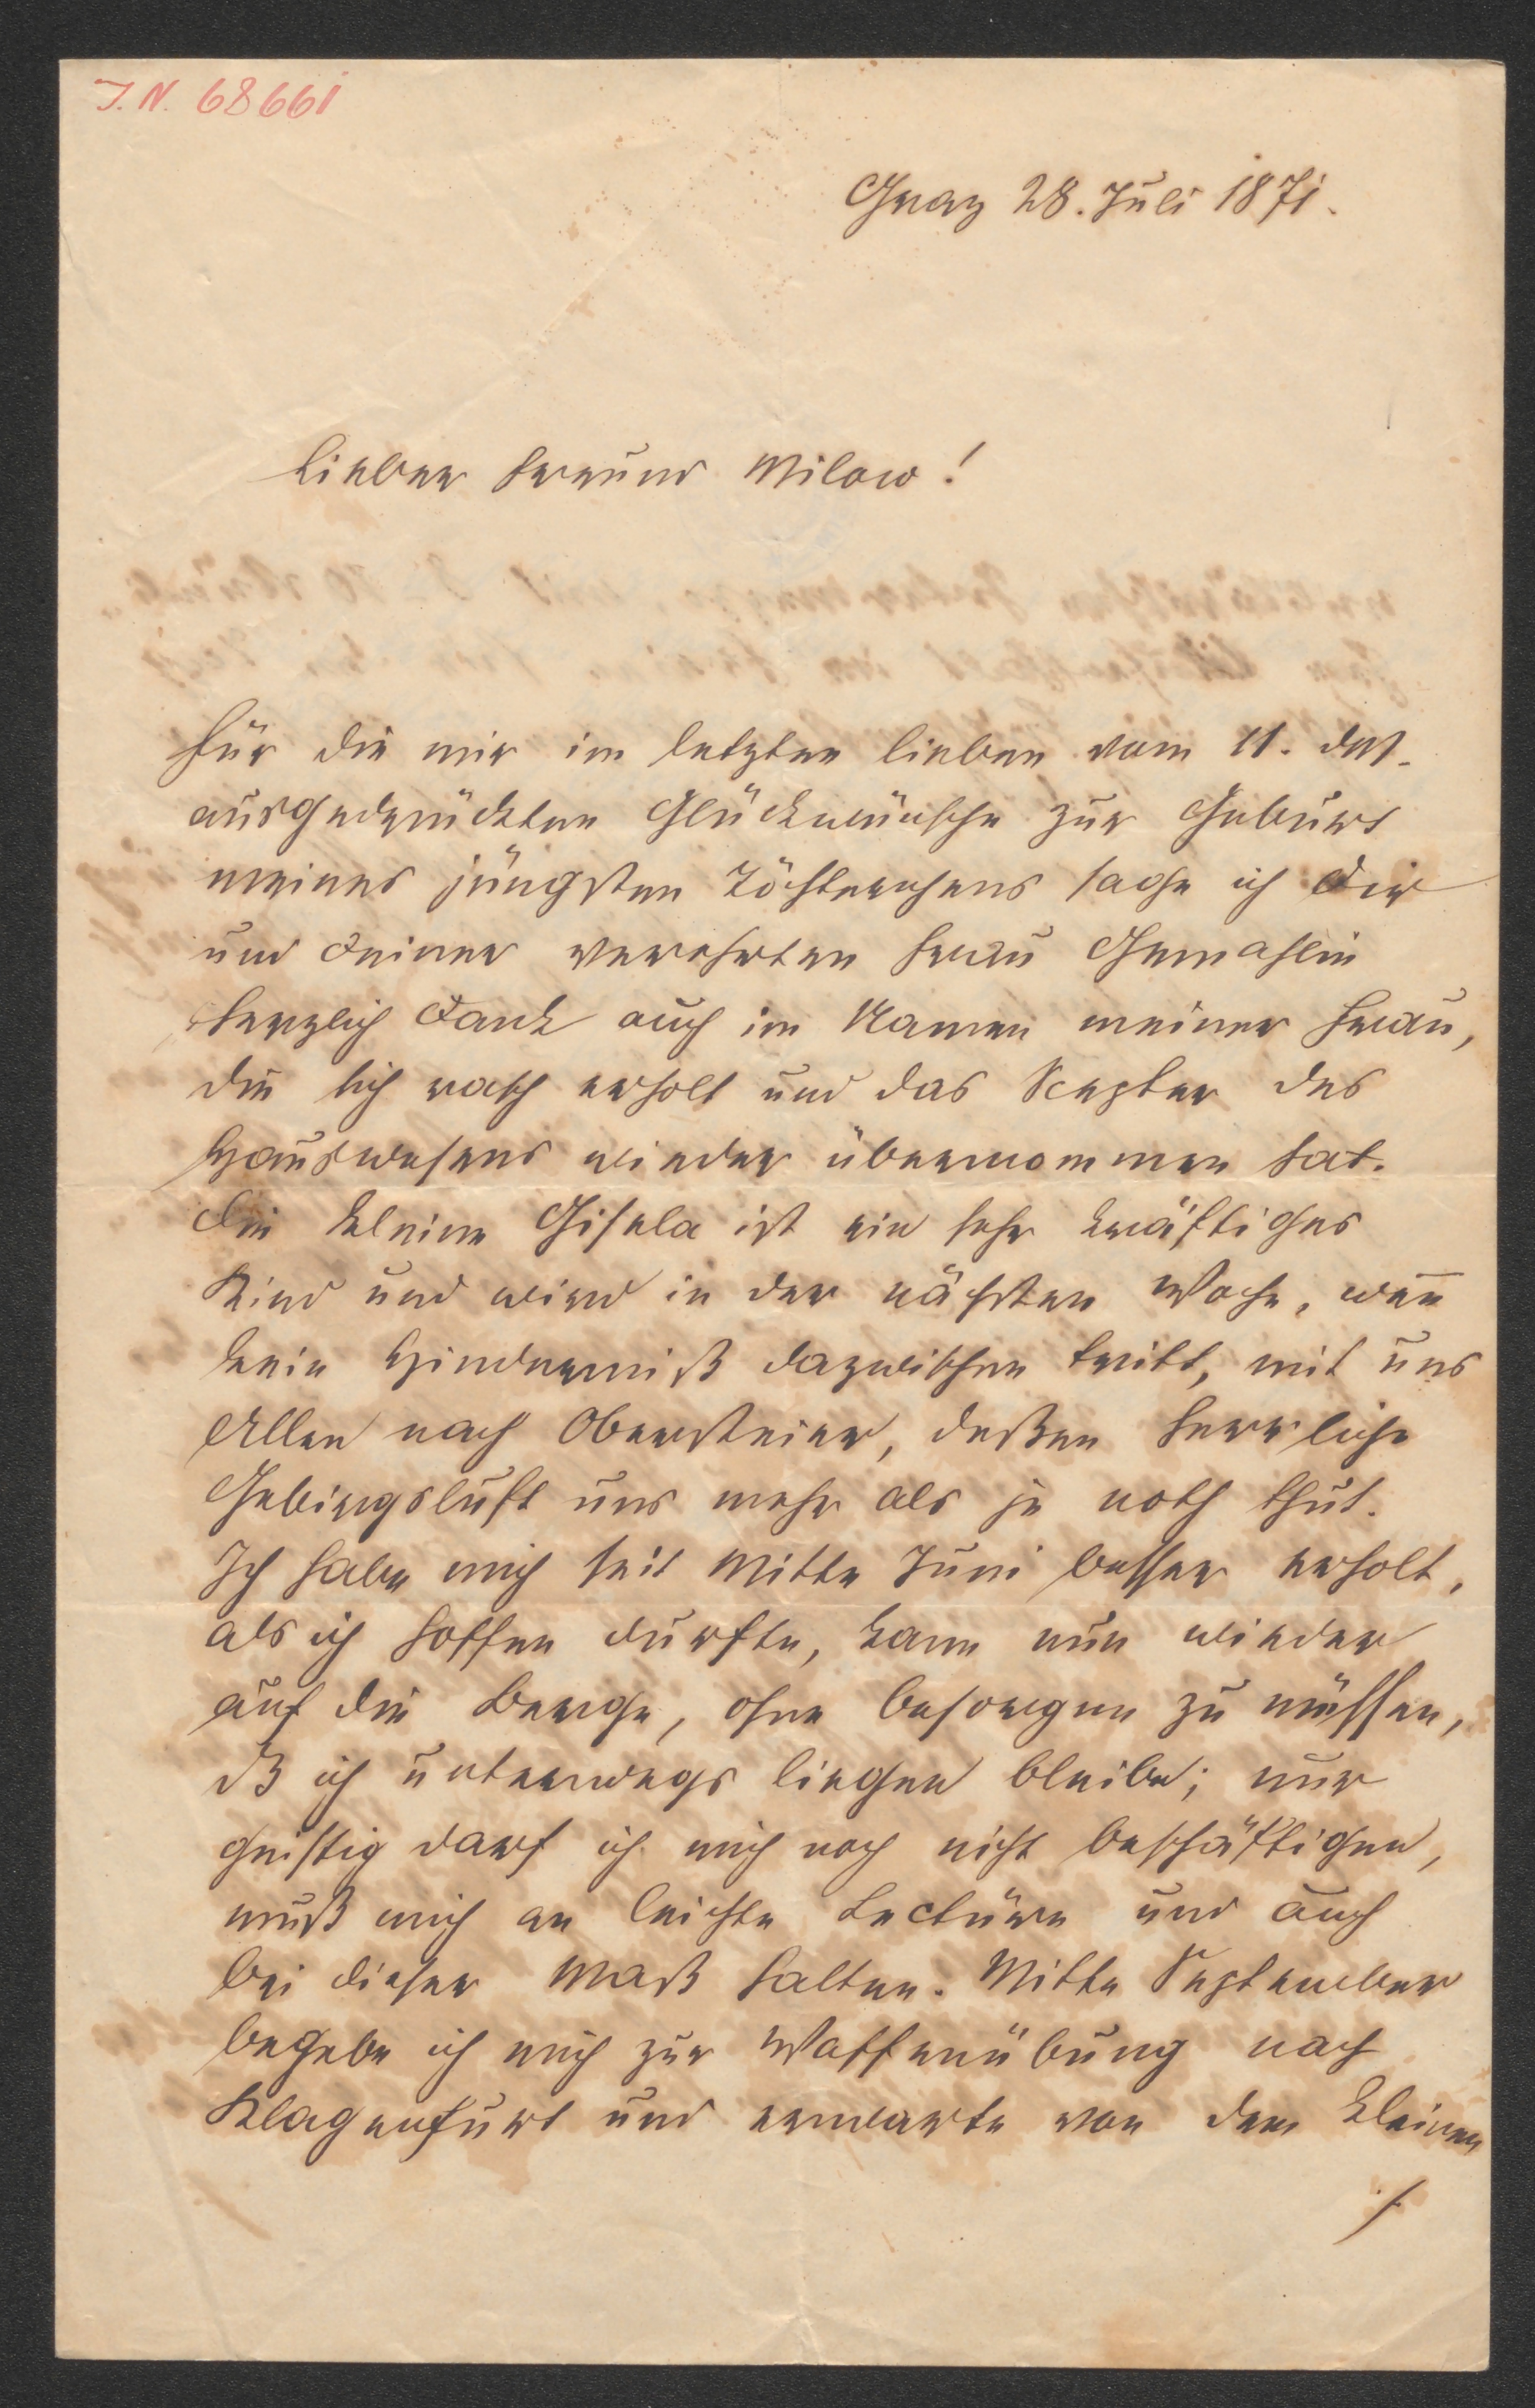 J. N. 68661
Graz 28. Juli 1871.
Lieber Freund Milow!
Für die mir im letzten lieben vom 11. das.
ausgedrückten Glückwünsche zur Geburt
meines jüngsten Töchterchens sage ich Dir
und Deiner verehrten Frau Gemahlin
herzlich Dank auch im Namen meiner Frau,
die sich rasch erholt und das Scepter des
Hauswesens wieder übernommen hat.
Die kleine Gisela ist ein sehr kräftiges
Kind und wird in der nächsten Woche, wen̄
kein Hinderniß dazwischen tritt, mit uns
Allen nach Obersteier, deßen herrliche
Gebirgsluft uns mehr als je noth thut.
Ich habe mich seit Mitte Juni besser erholt,
als ich hoffen durfte, kann nun wieder
auf die Berge, ohne besorgen zu müssen,
dß ich unterwegs liegen bleibe; nur
geistig darf ich mich noch nicht beschäftigen,
muß mich an leichte Lectüre und auch
bei dieser Maß halten. Mitte September
begebe ich mich zur Waffenübung nach
Klagenfurt und erwarte von dem kleinen
./.